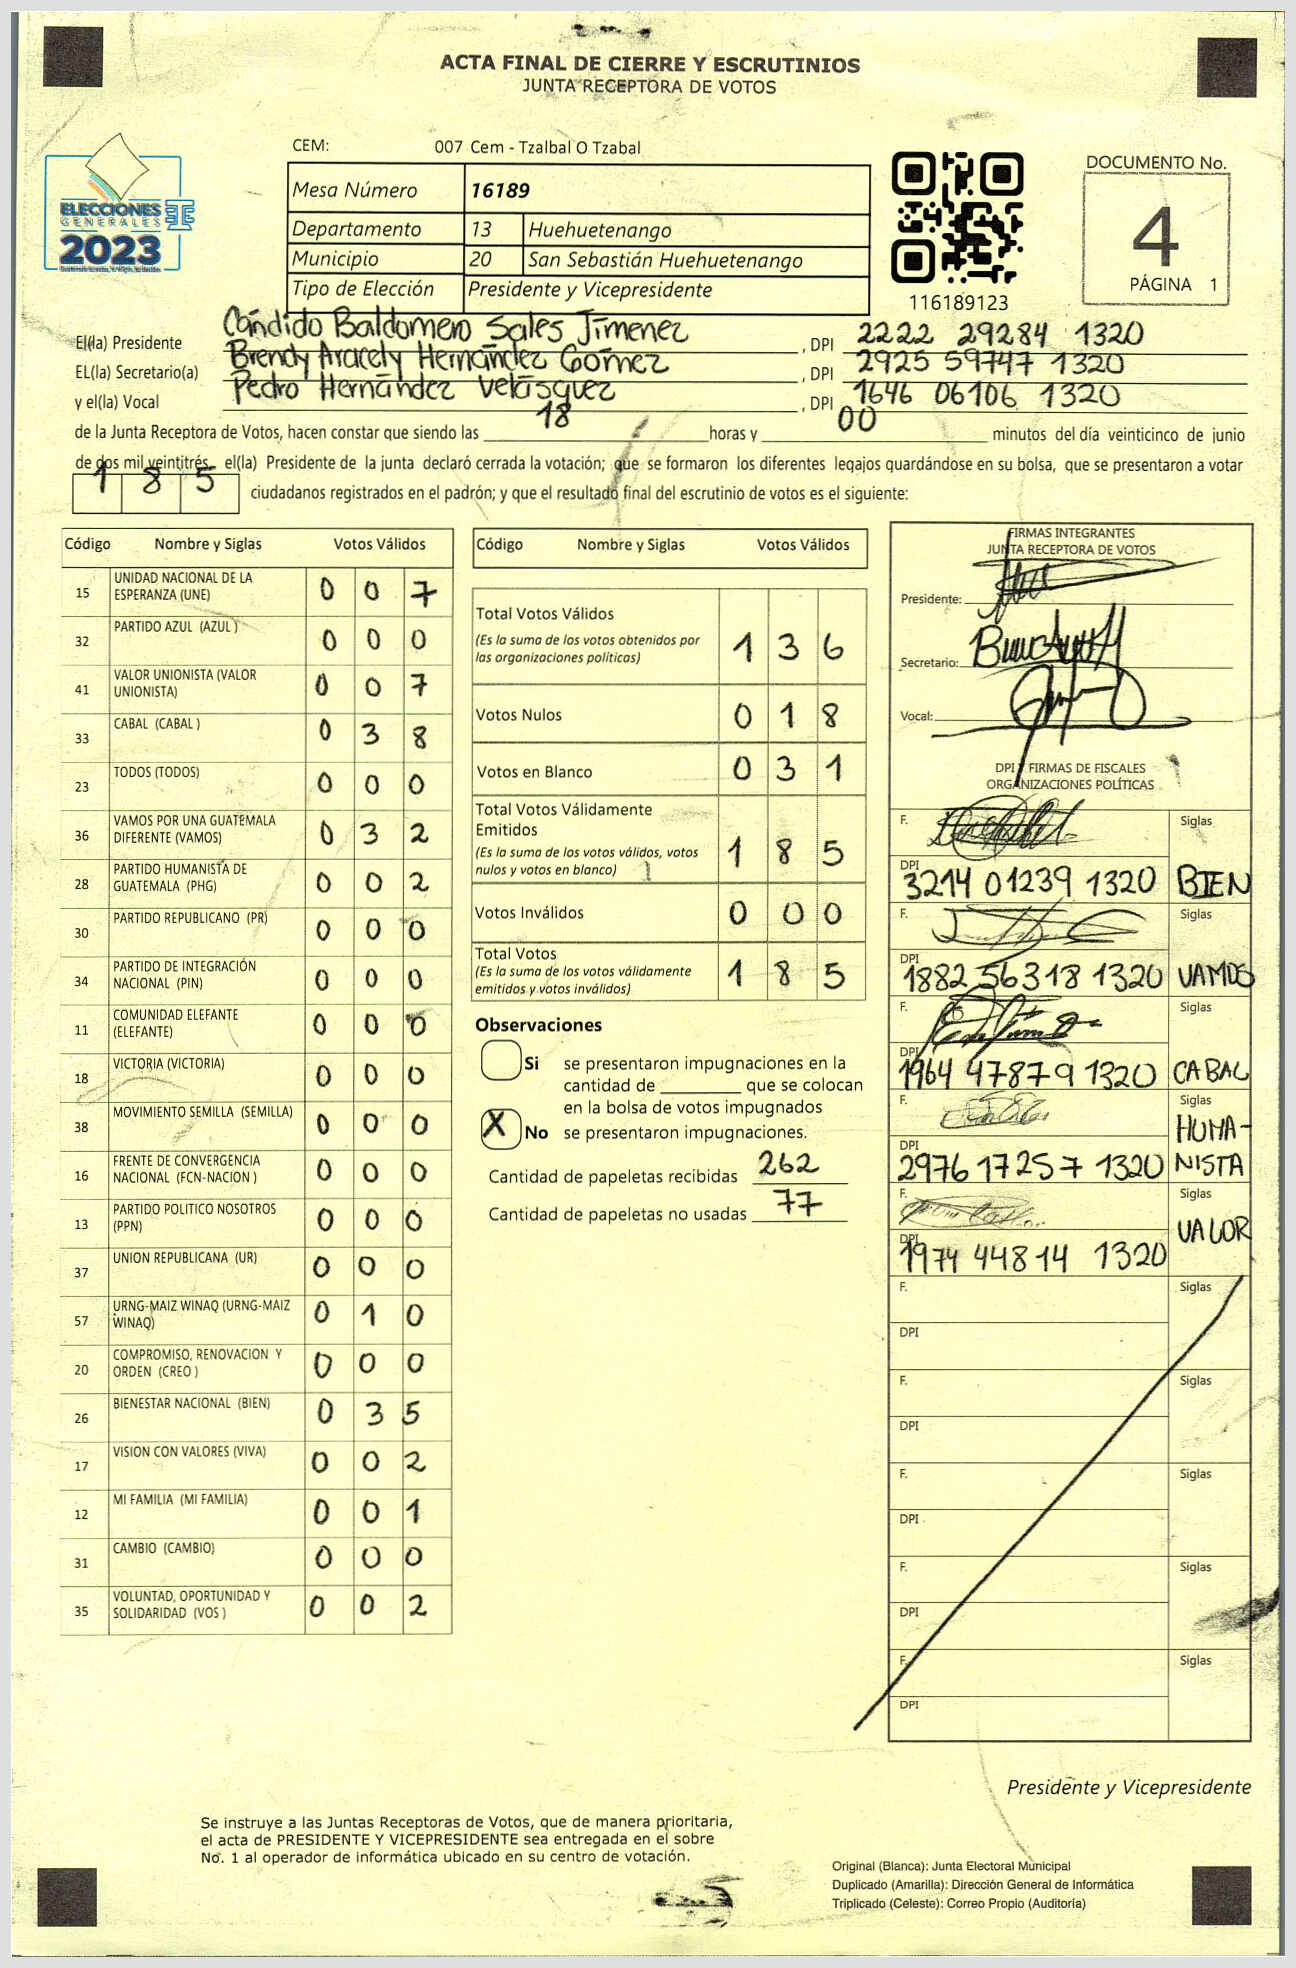 ACTA FINAL DE CIERRE Y ESCRUTINIOS
JUNTA RECEPTORA DE VOTOS
CEM: 007 Cem - Tzalbal O Tzabal
ELECCIONES
GENERALES
2023
Mesa Número 16189
Departamento 13 Huehuetenango
Municipio 20 San Sebastián Huehuetenango
Tipo de Elección Presidente y Vicepresidente
116189123
DOCUMENTO No.
4
PÁGINA 1
El(la) Presidente Cándido Baldomero Sales Jímenez, DPI 2222 29284 1320
EL(la) Secretario(a) Brendy Aracely Hernández Gómez, DPI 2925 59747 1320
y el(la) Vocal Pedro Hernández Velásquez, DPI 1646 06106 1320
de la Junta Receptora de Votos, hacen constar que siendo las 18 horas y 00 minutos del día veinticinco de junio
de dos mil veintitrés, el(la) Presidente de la junta declaró cerrada la votación; que se formaron los diferentes legajos guardándose en su bolsa, que se presentaron a votar
185 ciudadanos registrados en el padrón; y que el resultado final del escrutinio de votos es el siguiente:
Código Nombre y Siglas Votos Válidos
15 UNIDAD NACIONAL DE LA ESPERANZA (UNE) 0 0 7
32 PARTIDO AZUL (AZUL ) 0 0 0
41 VALOR UNIONISTA (VALOR UNIONISTA) 0 0 7
33 CABAL (CABAL ) 0 3 8
23 TODOS (TODOS) 0 0 0
36 VAMOS POR UNA GUATEMALA DIFERENTE (VAMOS) 0 3 2
28 PARTIDO HUMANISTA DE GUATEMALA (PHG) 0 0 2
30 PARTIDO REPUBLICANO (PR) 0 0 0
34 PARTIDO DE INTEGRACIÓN NACIONAL (PIN) 0 0 0
11 COMUNIDAD ELEFANTE (ELEFANTE) 0 0 0
18 VICTORIA (VICTORIA) 0 0 0
38 MOVIMIENTO SEMILLA (SEMILLA) 0 0 0
16 FRENTE DE CONVERGENCIA NACIONAL (FCN-NACION ) 0 0 0
13 PARTIDO POLITICO NOSOTROS (PPN) 0 0 0
37 UNION REPUBLICANA (UR) 0 0 0
57 URNG-MAIZ WINAQ (URNG-MAIZ WINAQ) 0 1 0
20 COMPROMISO, RENOVACION Y ORDEN (CREO ) 0 0 0
26 BIENESTAR NACIONAL (BIEN) 0 3 5
17 VISION CON VALORES (VIVA) 0 0 2
12 MI FAMILIA (MI FAMILIA) 0 0 1
31 CAMBIO (CAMBIO) 0 0 0
35 VOLUNTAD, OPORTUNIDAD Y SOLIDARIDAD (VOS ) 0 0 2
Código Nombre y Siglas Votos Válidos
Total Votos Válidos
(Es la suma de los votos obtenidos por
las organizaciones políticas) 1 3 6
Votos Nulos 0 1 8
Votos en Blanco 0 3 1
Total Votos Válidamente
Emitidos
(Es la suma de los votos válidos, votos
nulos y votos en blanco) 1 8 5
Votos Inválidos 0 0 0
Total Votos
(Es la suma de los votos válidamente
emitidos y votos inválidos) 1 8 5
Observaciones
Si se presentaron impugnaciones en la
cantidad de ________ que se colocan
en la bolsa de votos impugnados
X No se presentaron impugnaciones.
Cantidad de papeletas recibidas 262
Cantidad de papeletas no usadas 77
FIRMAS INTEGRANTES
JUNTA RECEPTORA DE VOTOS
Presidente:
Secretario:
Vocal:
DPI Y FIRMAS DE FISCALES
ORGANIZACIONES POLÍTICAS
F. Siglas
DPI 3214 01239 1320 BIEN
F. Siglas
DPI 1882 56318 1320 VAMOS
F. Siglas
DPI 1964 47879 1320 CABAL
F. Siglas
DPI 2976 17257 1320 HUMA-NISTA
F. Siglas
DPI 1974 44814 1320 VALOR
F. Siglas
DPI
F. Siglas
DPI
F. Siglas
DPI
F. Siglas
DPI
F. Siglas
DPI
Presidente y Vicepresidente
Se instruye a las Juntas Receptoras de Votos, que de manera prioritaria,
el acta de PRESIDENTE Y VICEPRESIDENTE sea entregada en el sobre
No. 1 al operador de informática ubicado en su centro de votación.
Original (Blanca): Junta Electoral Municipal
Duplicado (Amarilla): Dirección General de Informática
Triplicado (Celeste): Correo Propio (Auditoría)